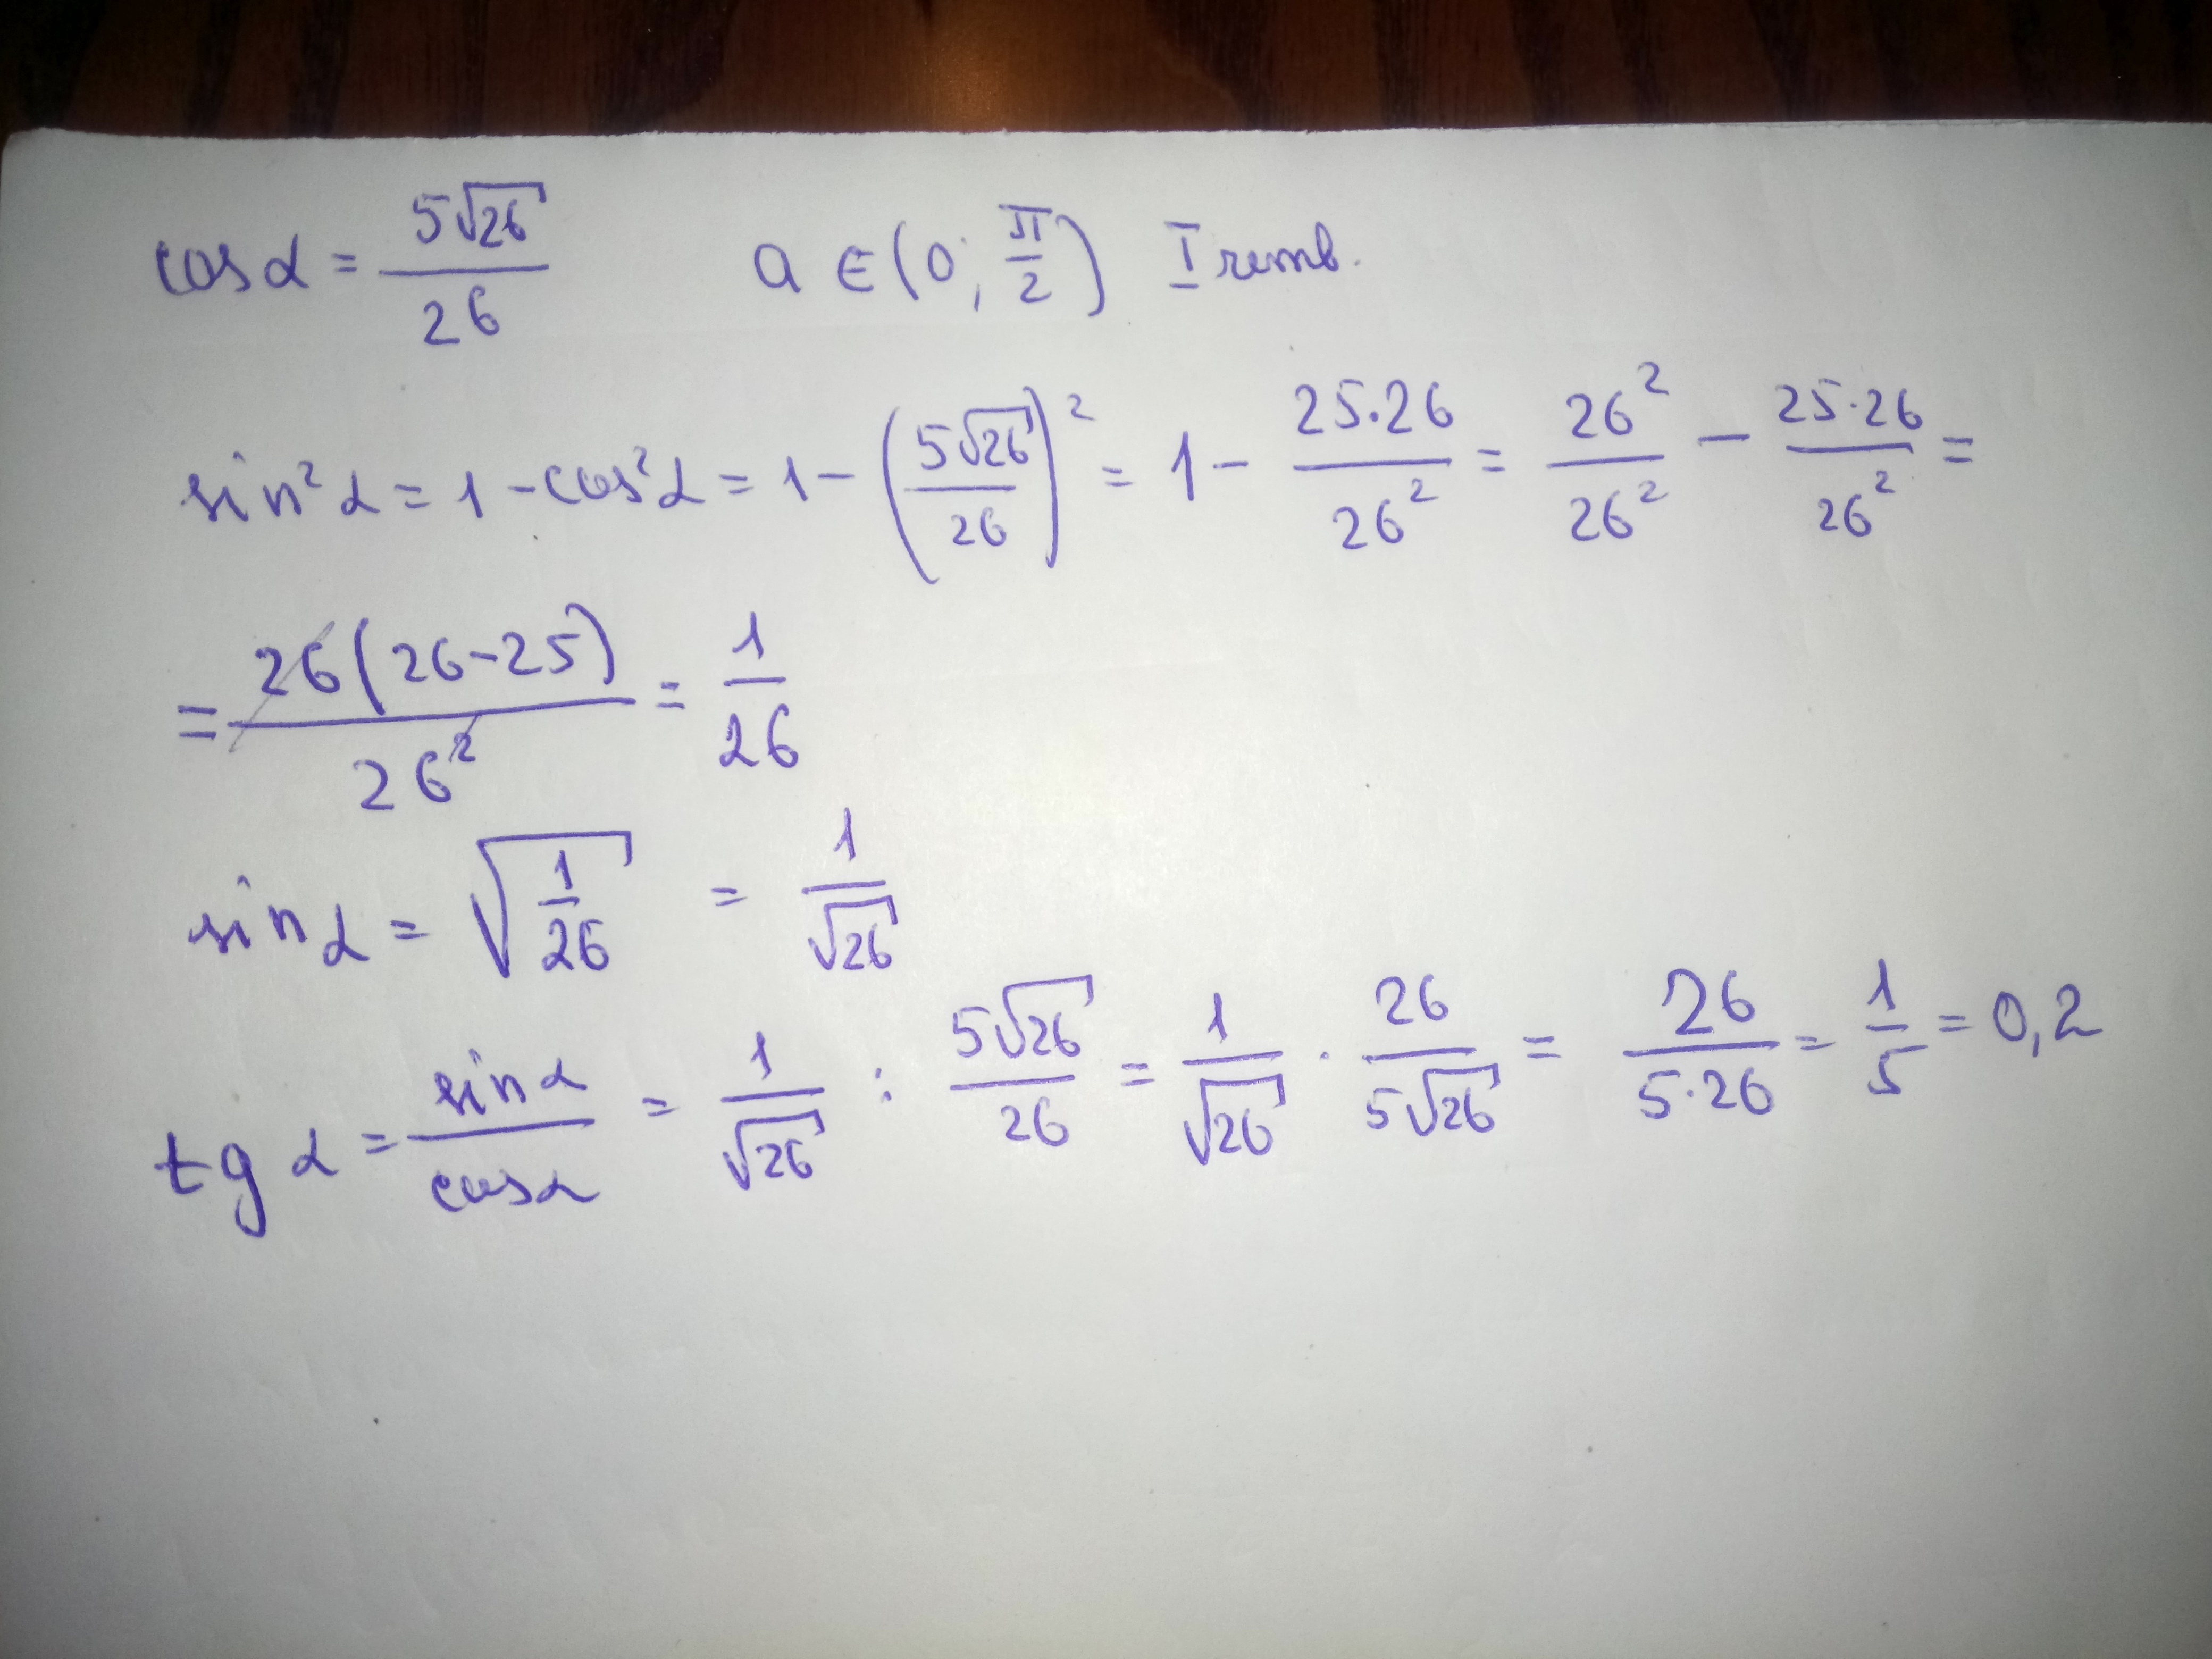 cos α = 5√26 / 26 a ∈ (0; π/2) I четв.
sin² α = 1 - cos² α = 1 - (5√26 / 26)² = 1 - 25·26 / 26² = 26² / 26² - 25·26 / 26² =
= 26(26-25) / 26² = 1 / 26
sin α = √(1/26) = 1 / √26
tg α = sin α / cos α = 1 / √26 : 5√26 / 26 = 1 / √26 · 26 / 5√26 = 26 / 5·26 = 1 / 5 = 0,2